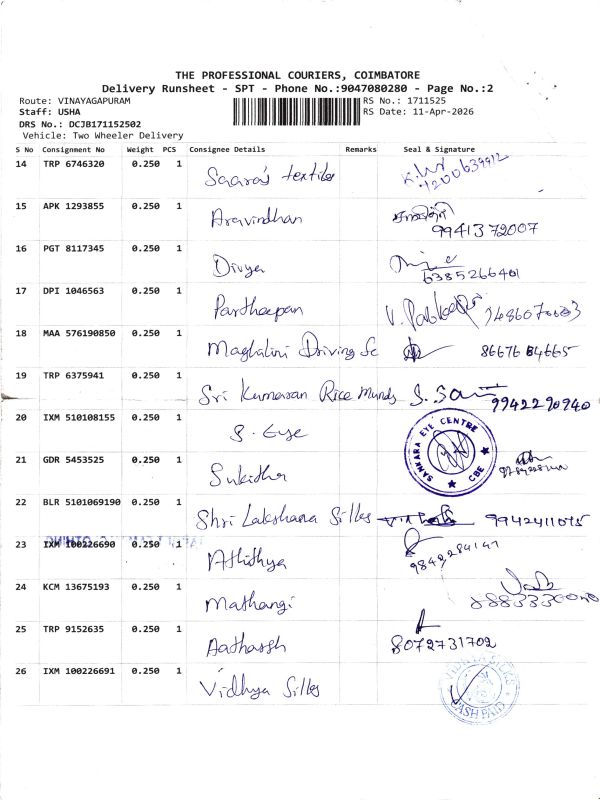 THE PROFESSIONAL COURIERS, COIMBATORE
Delivery Runsheet - SPT - Phone No.:9047080280 - Page No.:2
Route: VINAYAGAPURAM RS No.: 1711525
Staff: USHA RS Date: 11-Apr-2026
DRS No.: DCJB171152502
Vehicle: Two Wheeler Delivery
S No Consignment No Weight PCS Consignee Details Remarks Seal & Signature
14 TRP 6746320 0.250 1 Saara's textiles
15 APK 1293855 0.250 1 Aravindhan
9941372007
16 PGT 8117345 0.250 1 Divya
6385266401
17 DPI 1046563 0.250 1 Partheepan
18 MAA 576190850 0.250 1 Driving Sc
19 TRP 6375941 0.250 1 Sri Kumaran Rice
9942290940
20 IXM 510108155 0.250 1 S. Eye
SANKARA EYE CENTRE
CBE
21 GDR 5453525 0.250 1 Sukidha
22 BLR 5101069190 0.250 1 Shri Lakshana Silks 9942411075
23 IXM 100226690 0.250 1 Athidhya
9842284141
24 KCM 13675193 0.250 1 Mathangi
25 TRP 9152635 0.250 1 Aatharsh
8072731702
26 IXM 100226691 0.250 1 Vidhya Silks
VIDHYA SILKS
CASH PAID